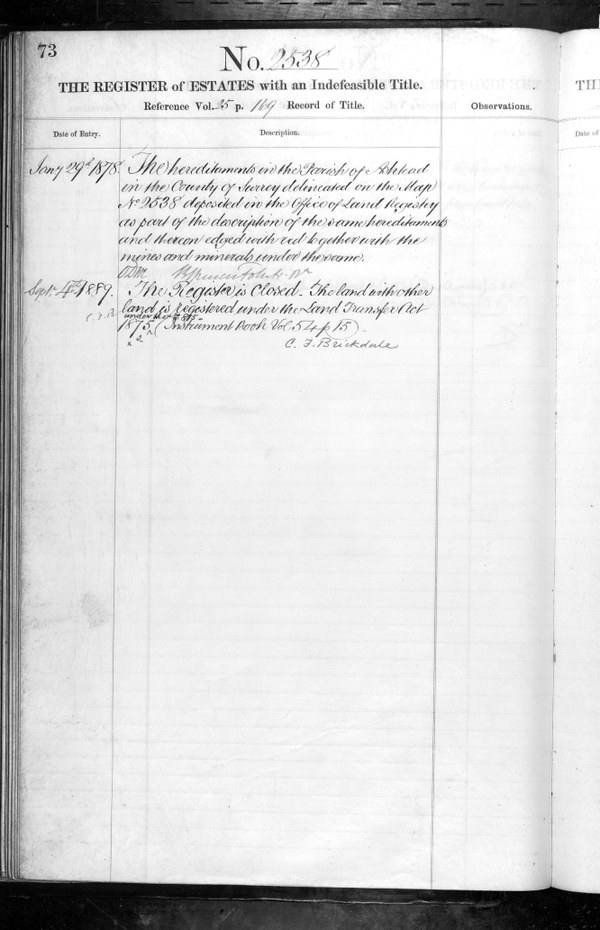 73
No. 2538
THE REGISTER of ESTATES with an Indefeasible Title.
Reference Vol. 25 p. 169 Record of Title.
Observations.
Date of Entry.
Description.
Jany 29th 1878.
The hereditaments in the Parish of Ashtead
in the County of Surrey delineated on the Map
No 2538 deposited in the Office of Land Registry
as part of the description of the same hereditaments
and thereon edged with red together with the
mines and minerals under the same.
Sept. 4th 1889.
The Register is Closed. The land with other
land is registered under the Land Transfer Act
under the
1875 (Instrument Book Vol. 54 p 15)
C. F. Brickdale
THE
Date of